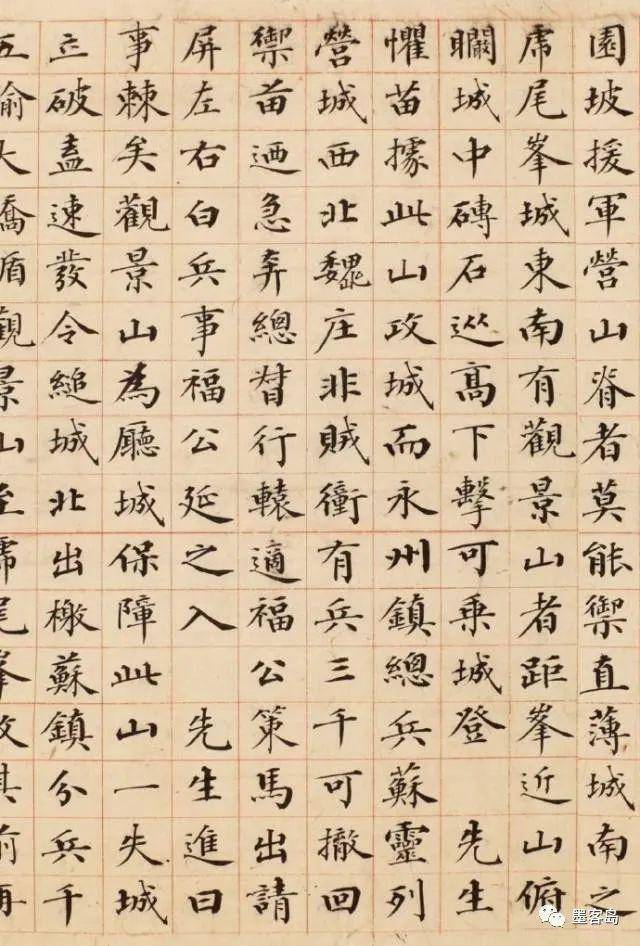 園坡援軍營山脊者莫能禦直薄城南之
虎尾峯城東南有觀景山者距峯近山俯
城中磚石巡高下擊可乗城登 先生
懼苗據此山攻城而永州鎮總兵蘇 靈列
營城西北魏庄非賊衝有兵三千可撤回
禦苗迺急奔總督行轅適福公策馬出請
屏左右白兵事福公延之入 先生進曰
事棘矣觀景山為廳城保障此山一失城
立破盍速發令縋城北出檄蘇鎮分兵千
五 大 觀景山至虎尾峯攻其前再
墨客岛